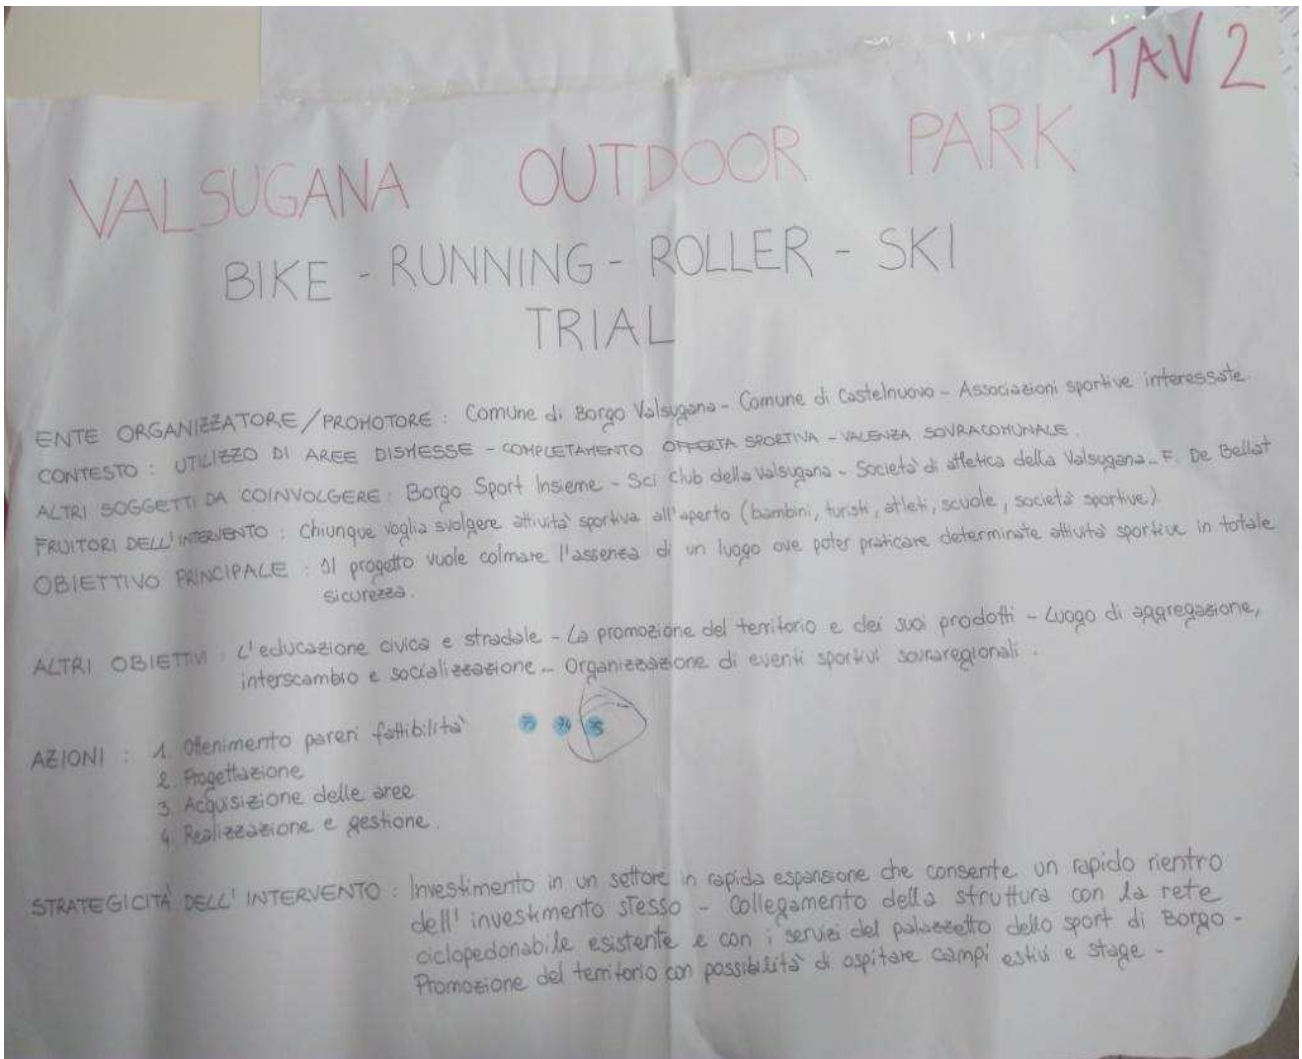 TAV 2
VALSUGANA OUTDOOR PARK
BIKE - RUNNING - ROLLER - SKI
TRIAL
ENTE ORGANIZZATORE / PROMOTORE : Comune di Borgo Valsugana - Comune di Castelnuovo - Associazioni sportive interessate
CONTESTO : UTILIZZO DI AREE DISMESSE - COMPLETAMENTO OFFERTA SPORTIVA - VALENZA SOVRACOMUNALE.
ALTRI SOGGETTI DA COINVOLGERE : Borgo Sport Insieme - Sci Club della Valsugana - Società di atletica della Valsugana - F. De Bellat
FRUITORI DELL'INTERVENTO : Chiunque voglia svolgere attività sportiva all'aperto (bambini, turisti, atleti, scuole, società sportive)
OBIETTIVO PRINCIPALE : Il progetto vuole colmare l'assenza di un luogo ove poter praticare determinate attività sportive in totale
sicurezza.
ALTRI OBIETTIVI : L'educazione civica e stradale - La promozione del territorio e dei suoi prodotti - Luogo di aggregazione,
interscambio e socializzazione - Organizzazione di eventi sportivi sovraregionali.
AZIONI : 1. Ottenimento pareri fattibilità
75
2. Progettazione
3. Acquisizione delle aree
4. Realizzazione e gestione.
STRATEGICITÀ DELL'INTERVENTO : Investimento in un settore in rapida espansione che consente un rapido rientro
dell'investimento stesso - Collegamento della struttura con la rete
ciclopedonabile esistente e con i servizi del palazzetto dello sport di Borgo -
Promozione del territorio con possibilità di ospitare campi estivi e stage -